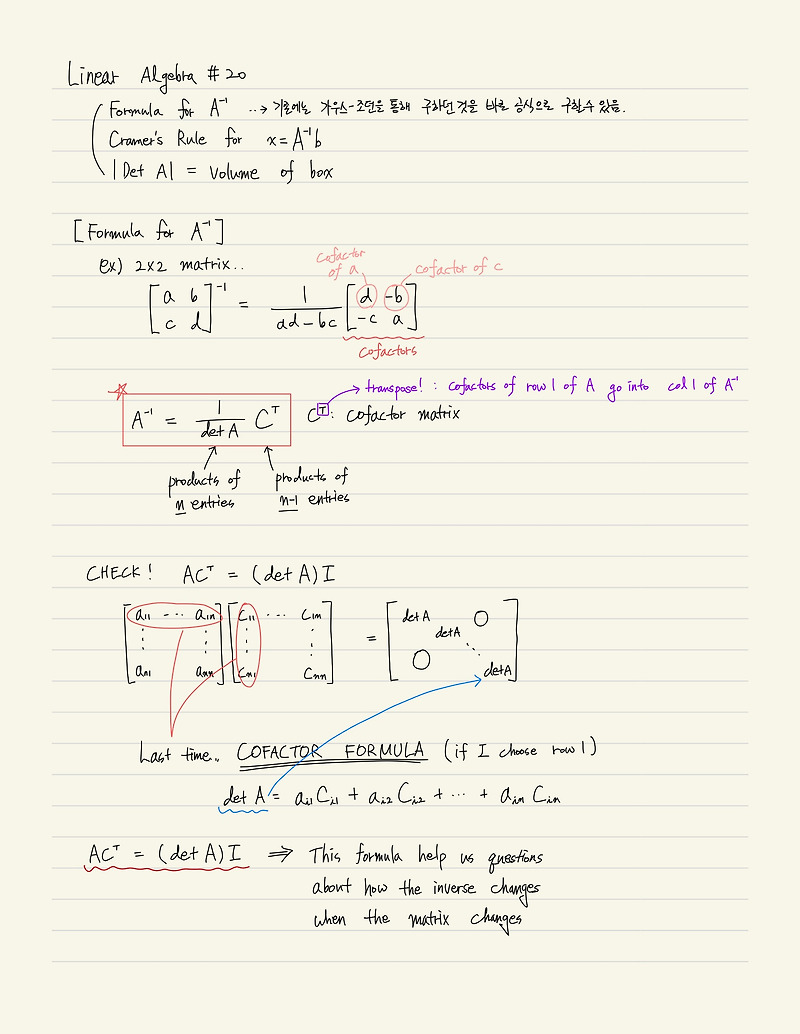 Linear Algebra #20
Formula for A⁻¹ ··→ 기존에는 가우스-조던을 통해 구하던 것을 바로 공식으로 구할수 있음.
Cramer's Rule for x = A⁻¹b
|Det A| = Volume of box
[Formula for A⁻¹]
ex) 2x2 matrix..
cofactor of a
cofactor of c
[a b; c d]⁻¹ = 1/(ad-bc) [d -b; -c a]
cofactors
transpose! : cofactors of row 1 of A go into col 1 of A⁻¹
A⁻¹ = 1/det A Cᵀ
Cᵀ: cofactor matrix
products of
n entries
products of
n-1 entries
CHECK! ACᵀ = (det A) I
[a₁₁ ··· a₁ₙ; ⋮ ⋮; aₙ₁ aₙₙ] [C₁₁ ··· C₁ₙ; ⋮ ⋮; Cₙ₁ Cₙₙ] = [det A 0; det A ⋱; 0 det A]
Last time.. COFACTOR FORMULA (if I choose row 1)
det A = aᵢ₁Cᵢ₁ + aᵢ₂Cᵢ₂ + ··· + aᵢₙCᵢₙ
ACᵀ = (det A) I ⇒ This formula help us questions
about how the inverse changes
when the matrix changes